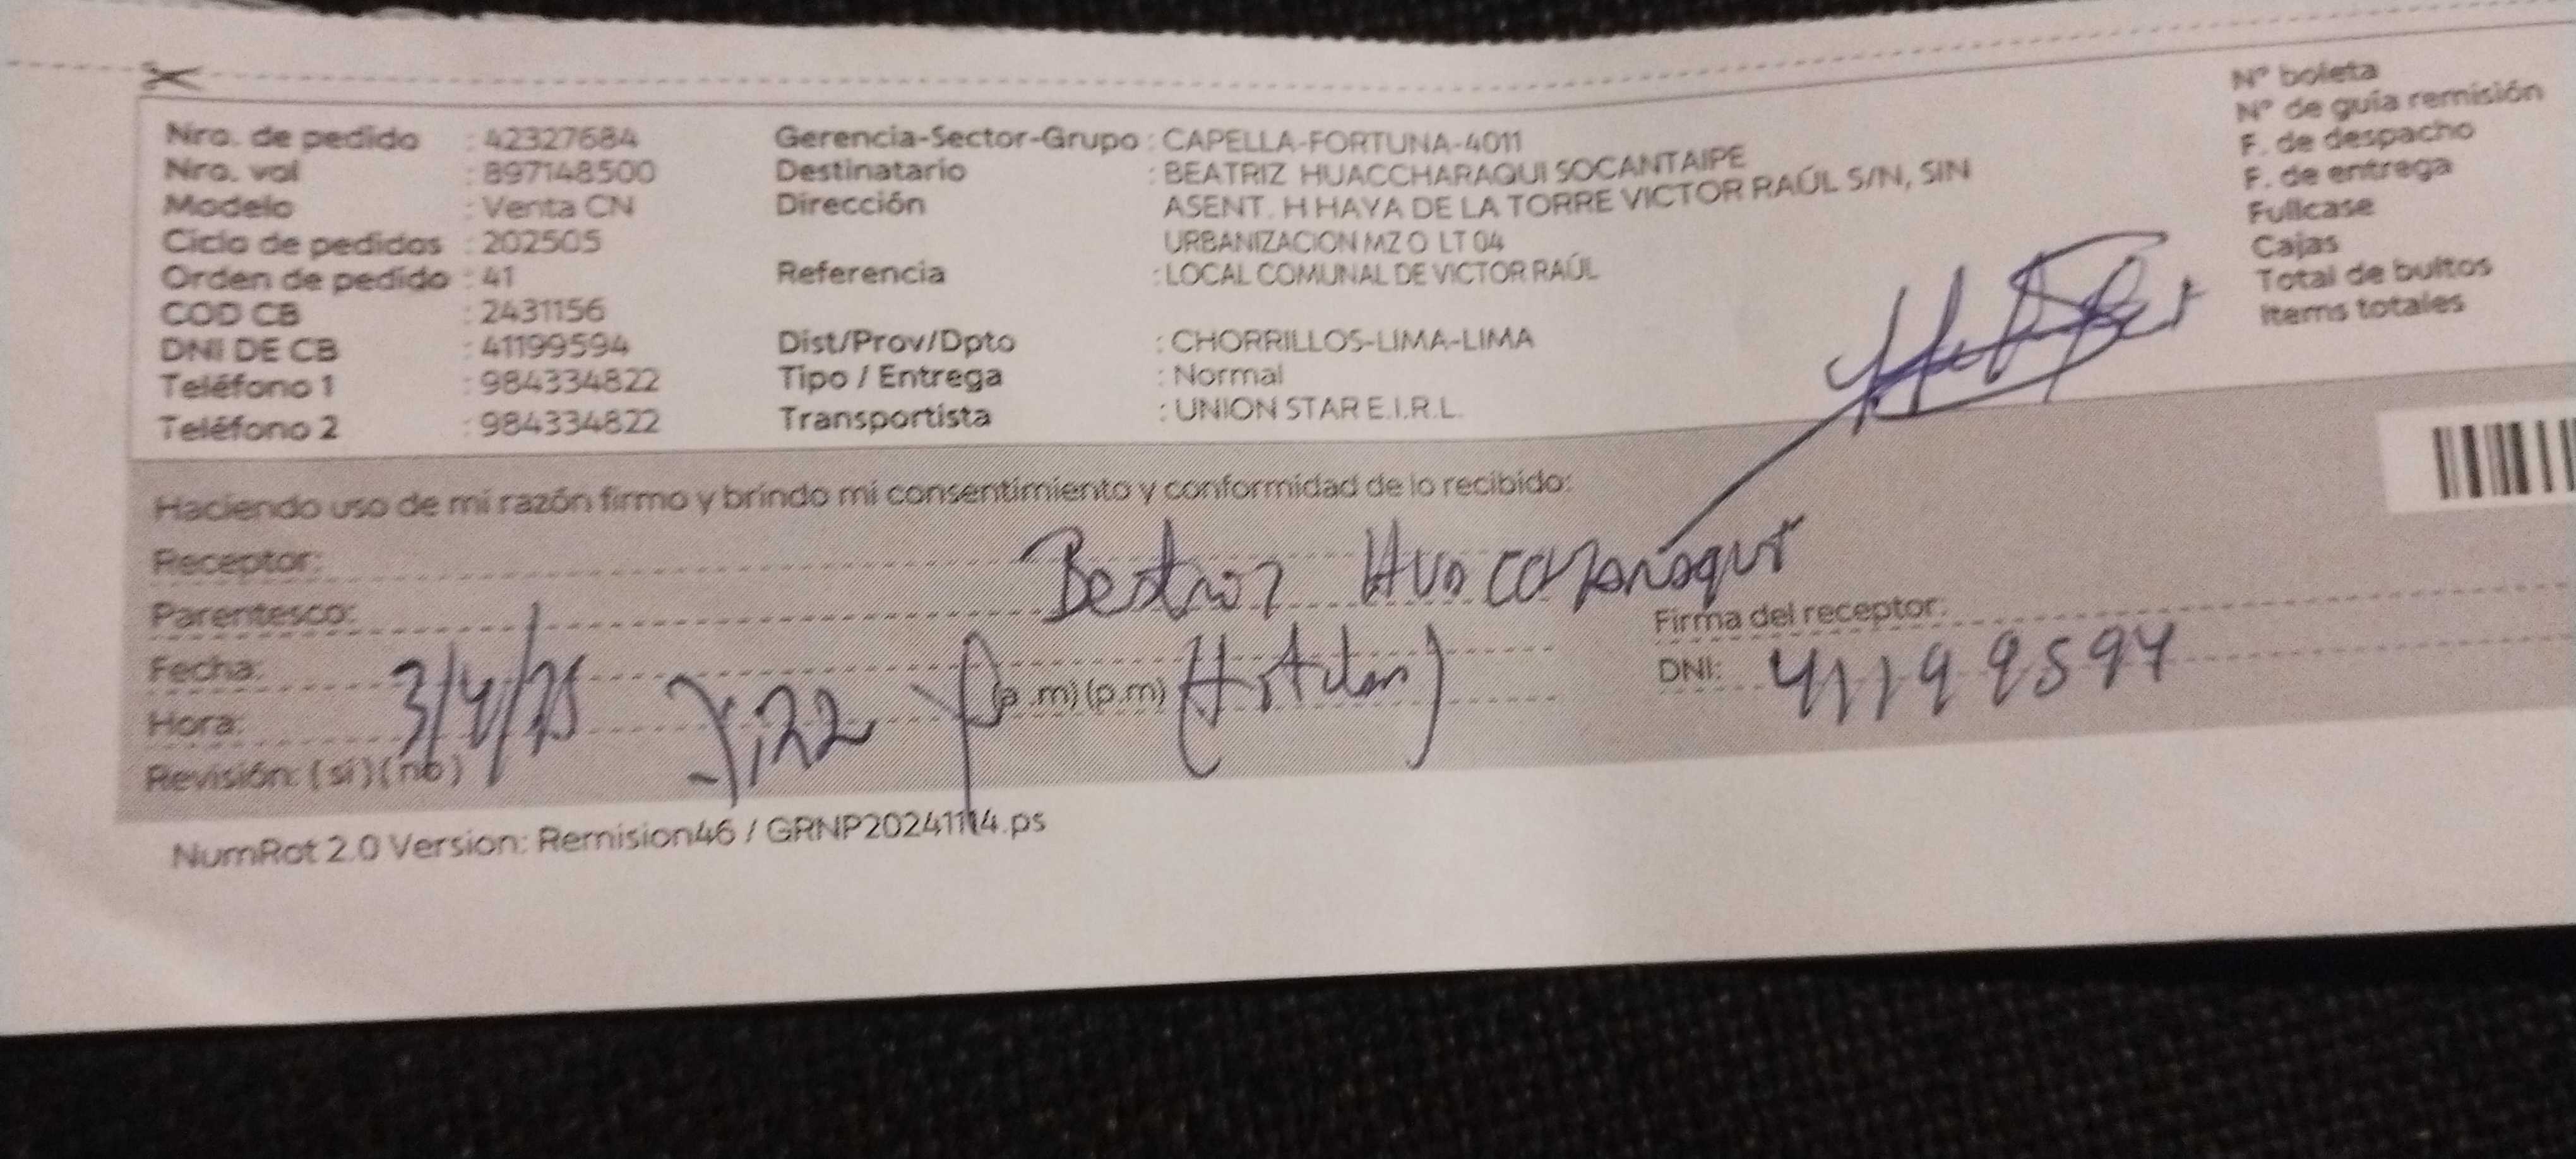 Nro. de pedido : 42327684
Nro. val : 897148500
Modelo : Venta CN
Ciclo de pedidos : 202505
Orden de pedido : 41
COD CB : 2431156
DNI DE CB : 41199594
Teléfono 1 : 984334822
Teléfono 2 : 984334822
Gerencia-Sector-Grupo : CAPELLA-FORTUNA-4011
Destinatario : BEATRIZ HUACCHARAQUI SOCANTAIPE
Dirección ASENT. H HAYA DE LA TORRE VICTOR RAÚL S/N, SIN
URBANIZACION MZ O LT 04
Referencia : LOCAL COMUNAL DE VICTOR RAÚL
Dist/Prov/Dpto : CHORRILLOS-LIMA-LIMA
Tipo / Entrega : Normal
Transportista : UNION STAR E.I.R.L.
N° boleta
N° de guía remisión
F. de despacho
F. de entrega
Fullcase
Cajas
Total de bultos
Items totales
Haciendo uso de mi razón firmo y brindo mi consentimiento y conformidad de lo recibido:
Receptor: Beatriz
Parentesco:
Firma del receptor:
Fecha: 3/4/25
DNI: 41199594
Hora: (a .m) (p.m)
Revisión: ( sí ) ( no )
NumRot 2.0 Version: Remision46 / GRNP20241114.ps